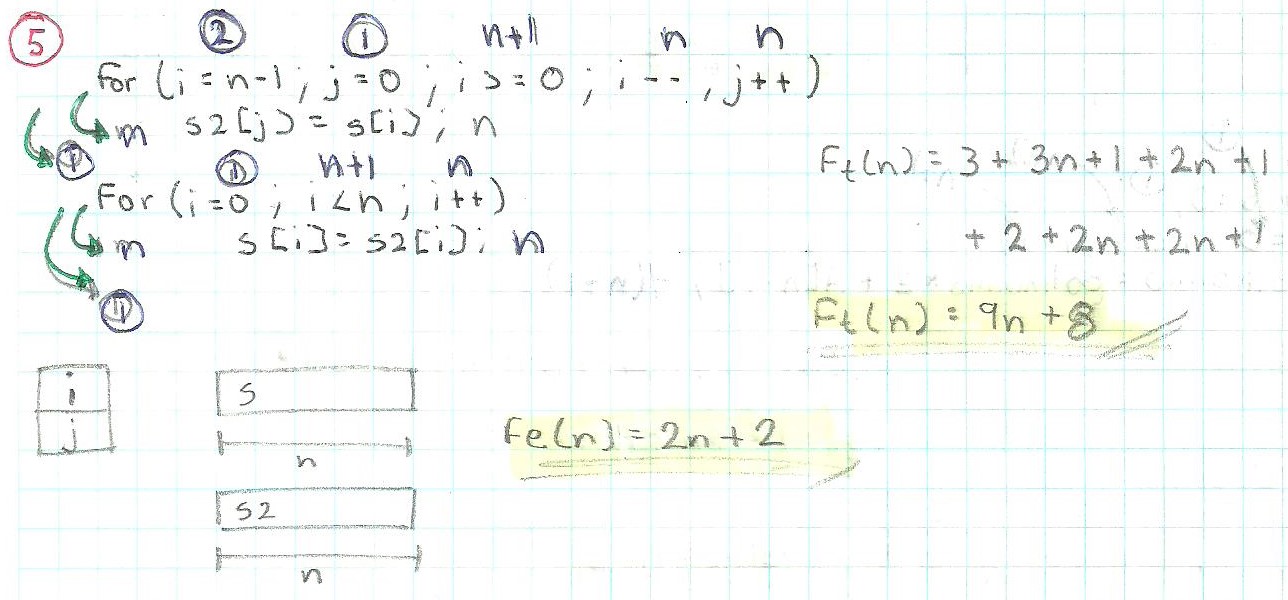 5 2 1 n+1 n n
for (i = n-1 ; j = 0 ; i >= 0 ; i -- , j++)
n s2[j] = s[i]; n
1 1 n+1 n
For (i=0 ; i<n ; i++)
n s[i] = s2[i]; n
1
Ft(n) = 3 + 3n+1 + 2n +1
+ 2 + 2n + 2n + 1
Ft(n) = 9n + 8
i
j
s
n
s2
n
Fe(n) = 2n + 2